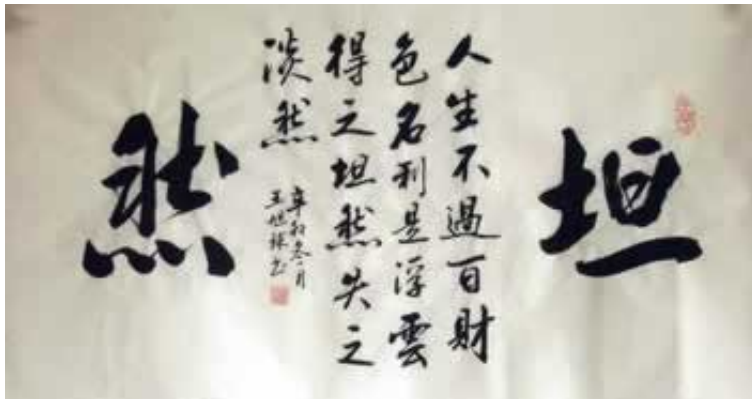 坦
人生不過百財
色名利是浮雲
得之坦然失之
淡然
辛卯冬月
然